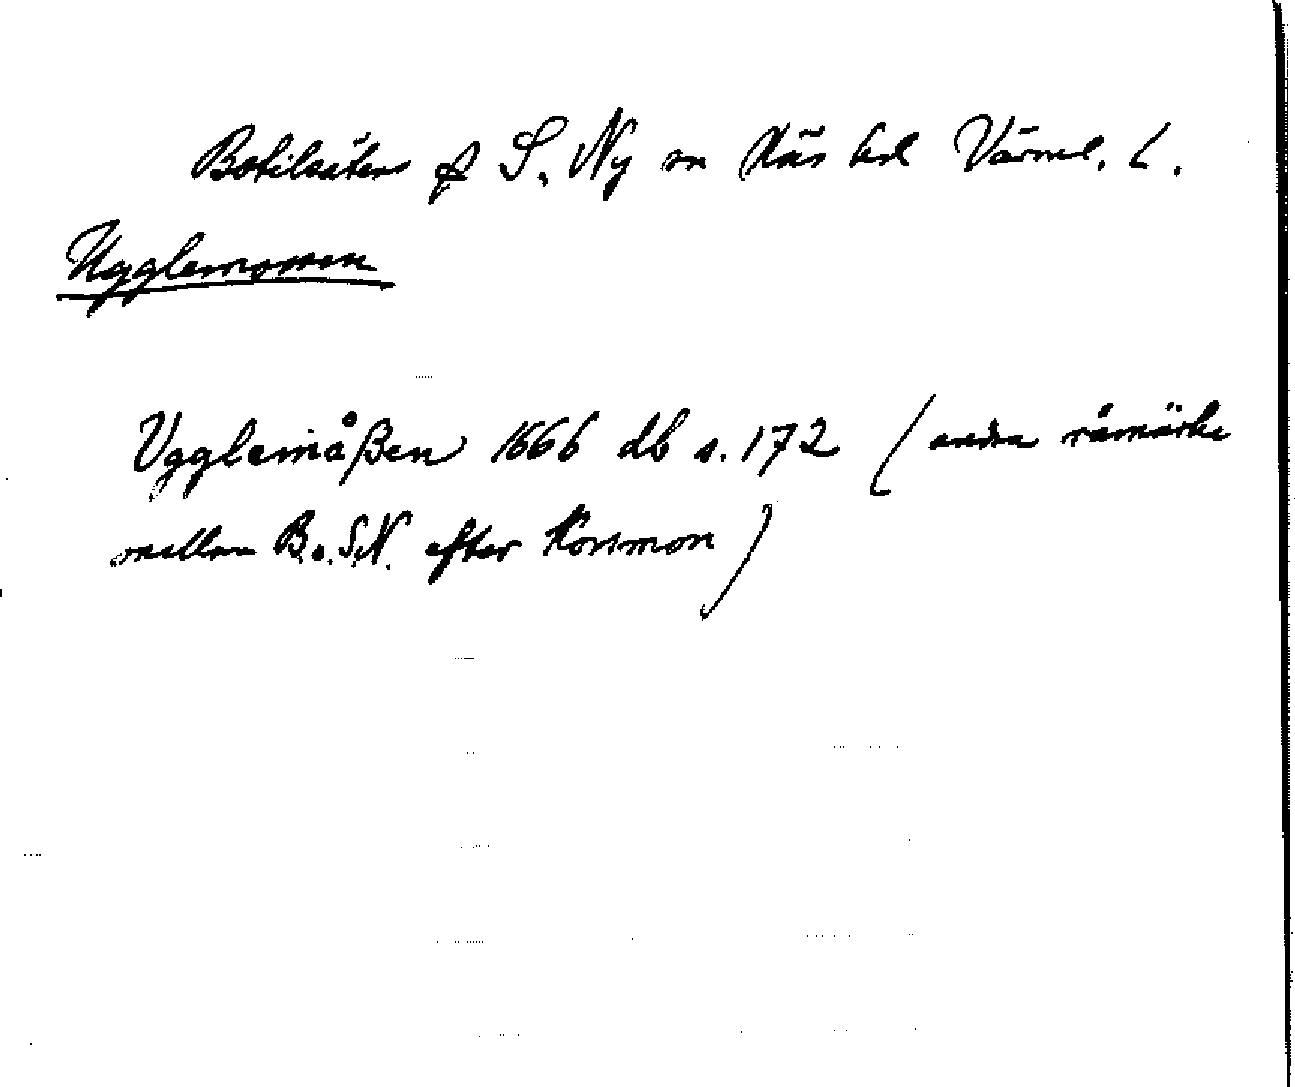 Botilsäters o S. Ny sn Näs hd Värml. l.
Ugglemossen
Ugglemåßen 1666 db s. 172 (andra råmärke
mellan B. o. S.N. efter Korsmon)